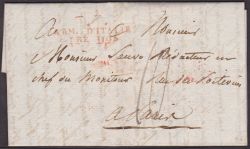 A Monsieur
ARM. D'ITALIE
Monsieur Sauvo Rédacteur en
chef du Moniteur rue des Poitevins
A Paris